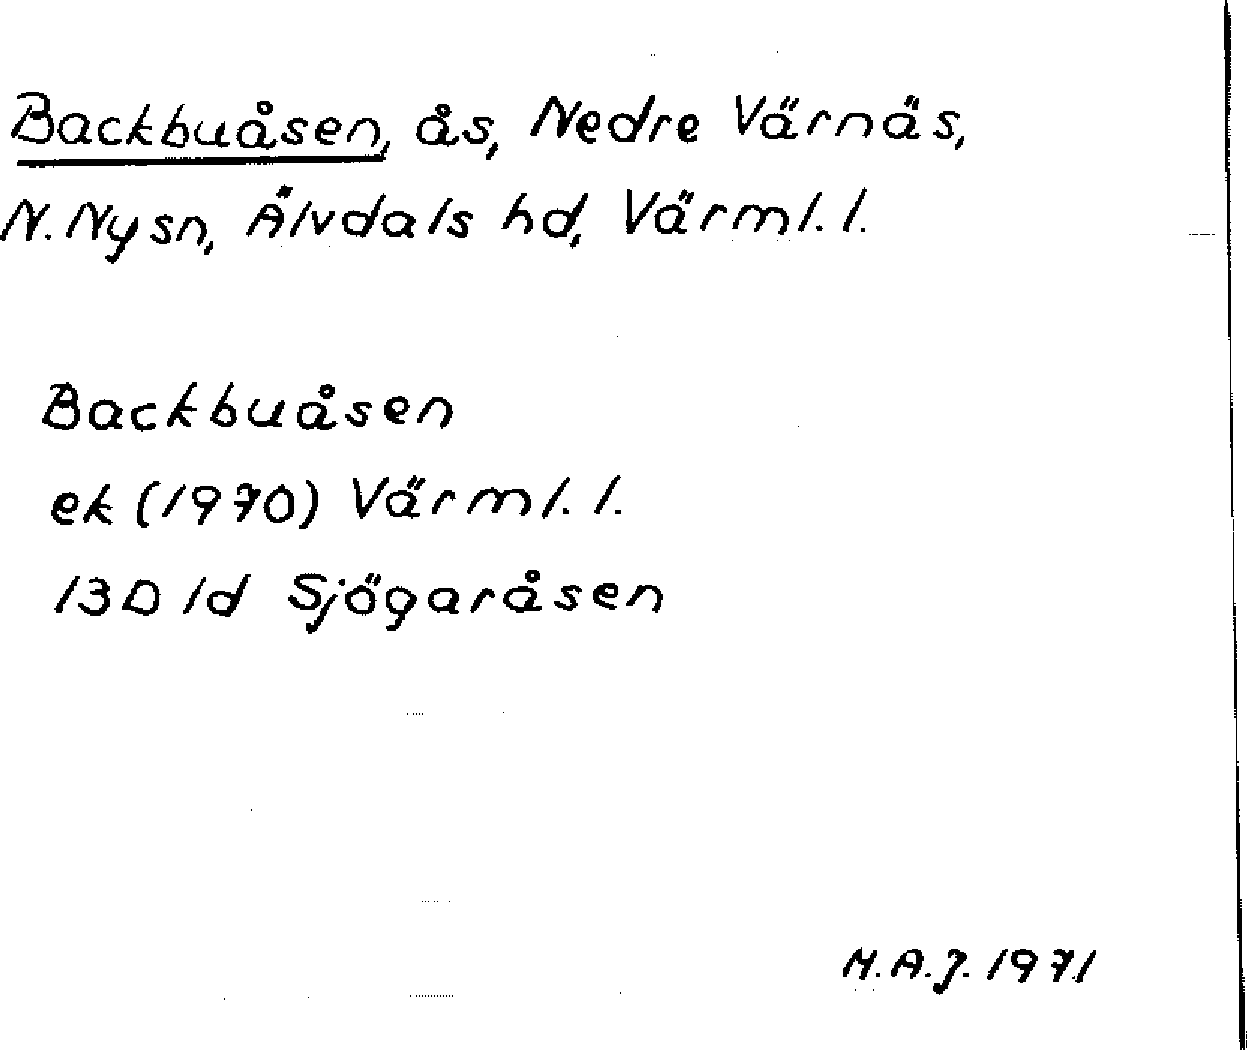 Backbuåsen, ås, Nedre Värnäs,
N. Ny sn, Älvdals hd, Värml. l.
Backbuåsen
ek (1970) Värml. l.
13D 1d Sjögaråsen
M.A.J. 1971